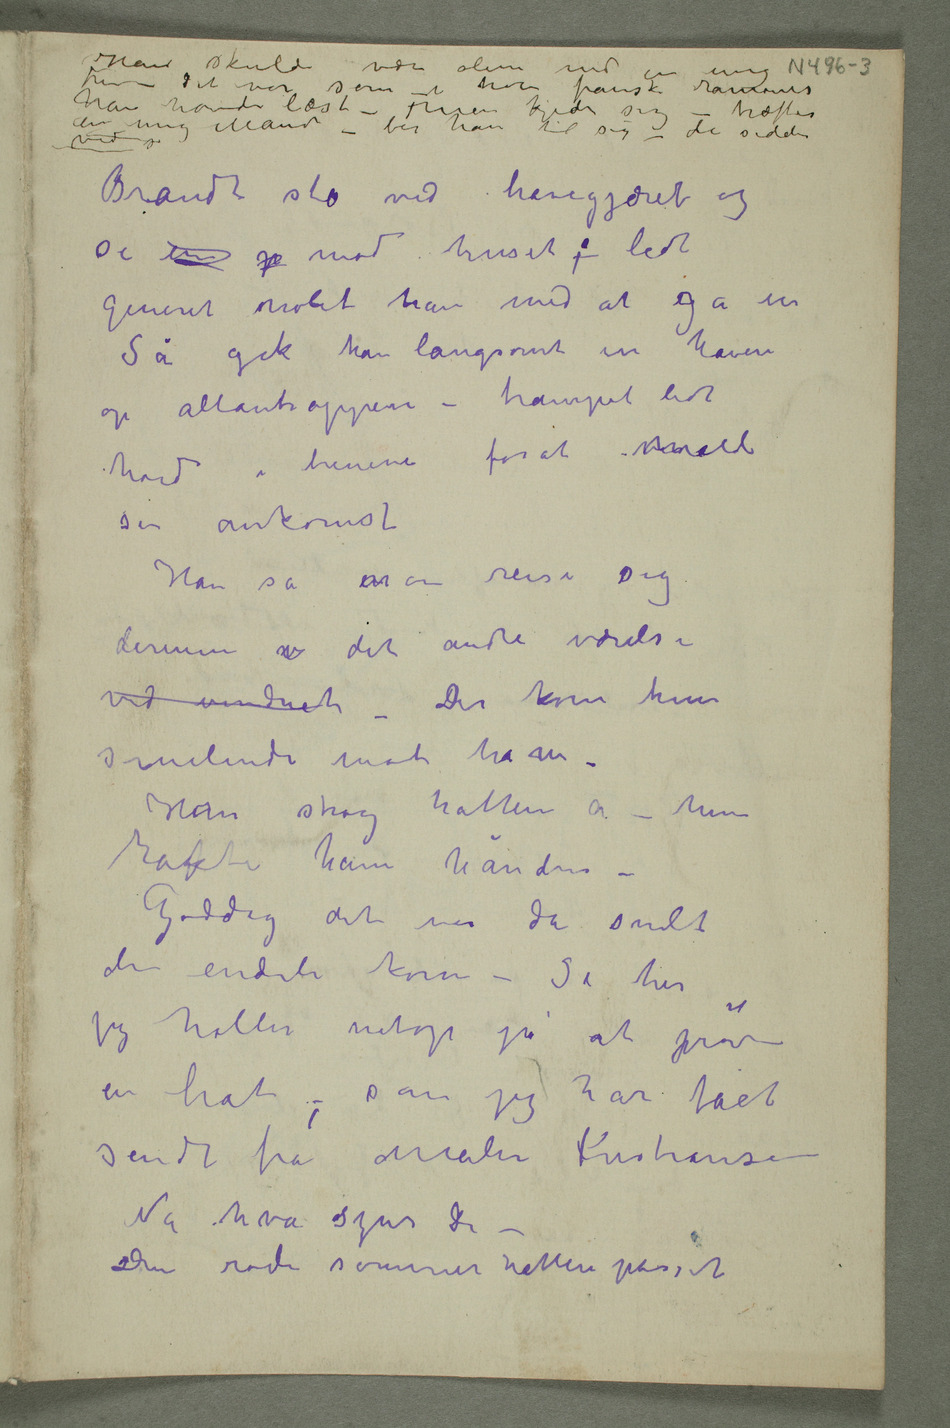 Han skulde være alene med en ung N496-3
frue det var som i hver fransk romanes
han havde læst – Fruen kjeder sig – træffer
en ung Mand – ber han til sig – de sidder
ved s
Brandt sto ved havegjæret og
så en på mod huset – ledt
generet nølet han med at gå in
Så gek han langsomt in haven
op altantrappen – trampet ledt
hård i benene forat melde
sin ankomst
Han så en reise sig
derinne v det andre værelse
ved vinduet – Der kom hun
smilende mot ham –
Han tog hatten a – hun
rakte ham hånden –
Goddag det var da snilt
de endeli kom – Se her
jeg holler netop på at prøve
en hat – som jeg har fået
sendt fra Maler Kristiansen
Nå hva synes De –
Den røde sommerhatten passet